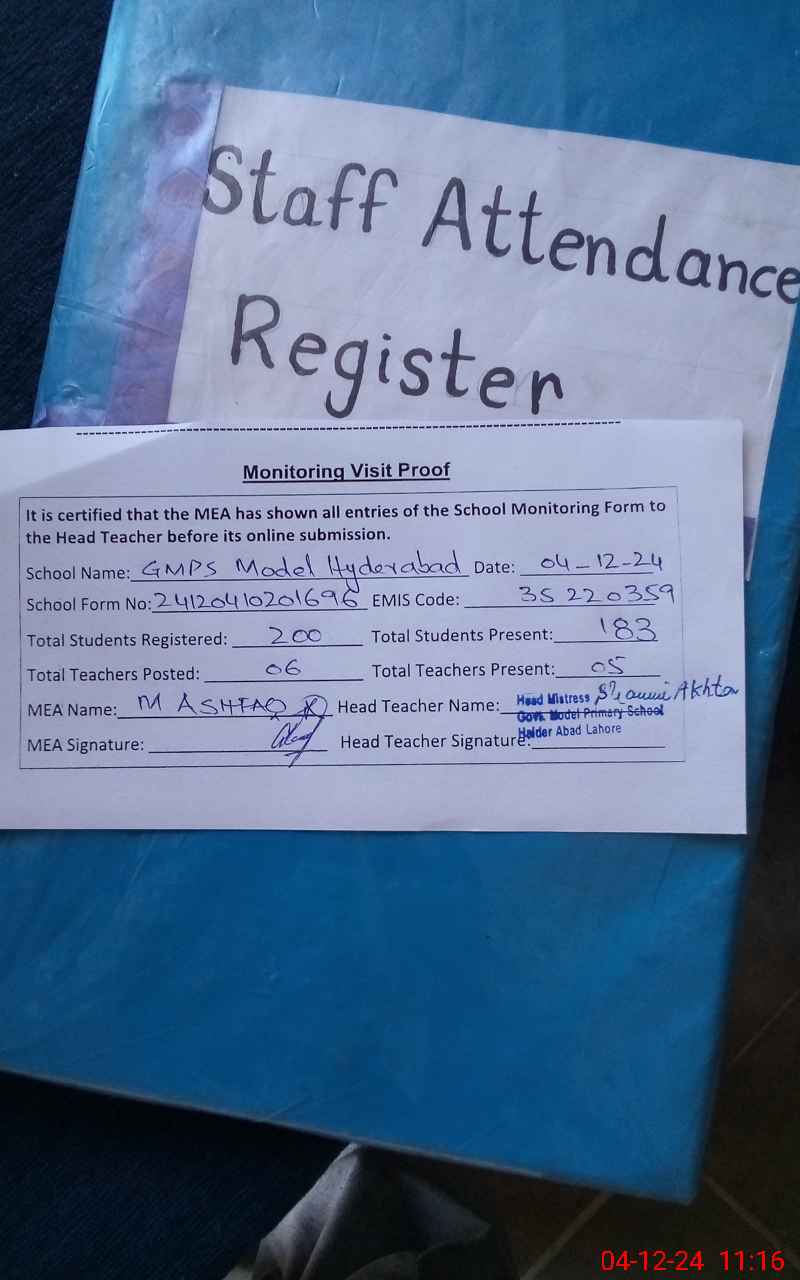 Staff Attendance
Register
Monitoring Visit Proof
It is certified that the MEA has shown all entries of the School Monitoring Form to
the Head Teacher before its online submission.
School Name: GMPS Model Hyderabad Date: 04-12-24
School Form No: 24120410201696 EMIS Code: 35220359
Total Students Registered: 200 Total Students Present: 183
Total Teachers Posted: 06 Total Teachers Present: 05
MEA Name: M ASHFAQ Head Teacher Name: Head Mistress Akhtar
Govt. Model Primary School
MEA Signature: Head Teacher Signature: Haider Abad Lahore
04-12-24 11:16